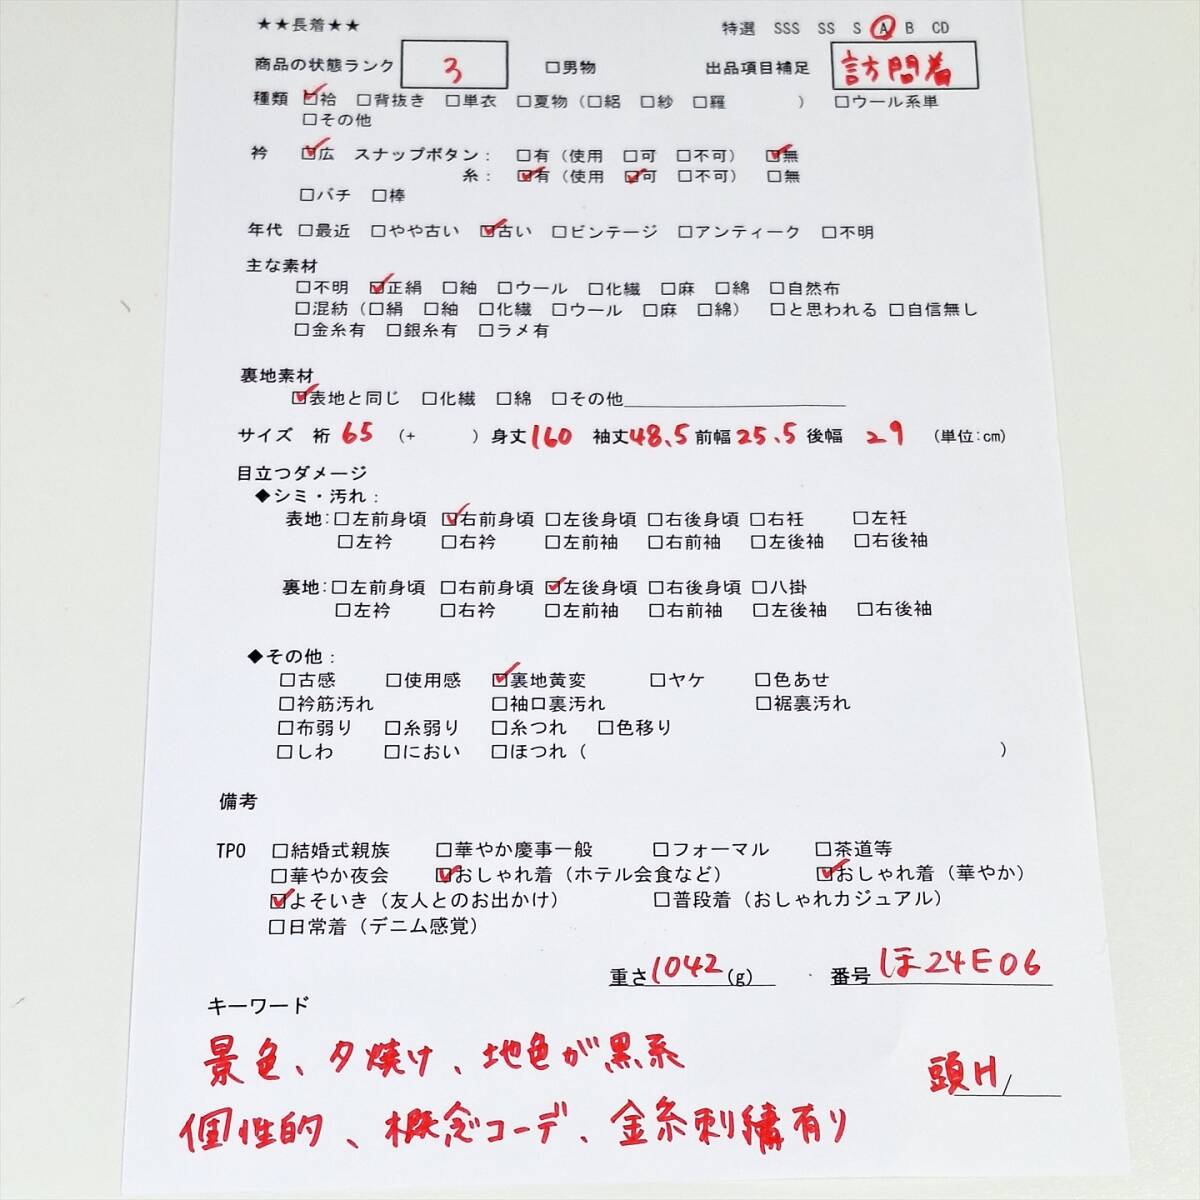 ★★長着★★
特選 SSS SS S A B CD
商品の状態ランク 3 □男物 出品項目補足 訪問着
種類 ☑袷 □背抜き □単衣 □夏物（□絽 □紗 □羅 ） □ウール系単
□その他
衿 ☑広 スナップボタン： □有（使用 □可 □不可） ☑無
糸： ☑有（使用 ☑可 □不可） □無
□バチ □棒
年代 □最近 □やや古い ☑古い □ビンテージ □アンティーク □不明
主な素材
□不明 ☑正絹 □紬 □ウール □化繊 □麻 □綿 □自然布
□混紡（□絹 □紬 □化繊 □ウール □麻 □綿） □と思われる □自信無し
□金糸有 □銀糸有 □ラメ有
裏地素材
☑表地と同じ □化繊 □綿 □その他
サイズ 裄 65 （+ ）身丈 160 袖丈 48.5 前幅 25.5 後幅 29 （単位：cm）
目立つダメージ
◆シミ・汚れ：
表地：□左前身頃 ☑右前身頃 □左後身頃 □右後身頃 □右衽 □左衽
□左衿 □右衿 □左前袖 □右前袖 □左後袖 □右後袖
裏地：□左前身頃 □右前身頃 ☑左後身頃 □右後身頃 □八掛
□左衿 □右衿 □左前袖 □右前袖 □左後袖 □右後袖
◆その他：
□古感 □使用感 ☑裏地黄変 □ヤケ □色あせ
□衿筋汚れ □袖口裏汚れ □裾裏汚れ
□布弱り □糸弱り □糸つれ □色移り
□しわ □におい □ほつれ（ ）
備考
TPO □結婚式親族 □華やか慶事一般 □フォーマル □茶道等
□華やか夜会 ☑おしゃれ着（ホテル会食など） ☑おしゃれ着（華やか）
☑よそいき（友人とのお出かけ） □普段着（おしゃれカジュアル）
□日常着（デニム感覚）
重さ 1042 (g) 番号 ほ24E06
キーワード
景色、夕焼け、地色が黒系
頭H/
個性的、概念コーデ、金糸刺繍有り